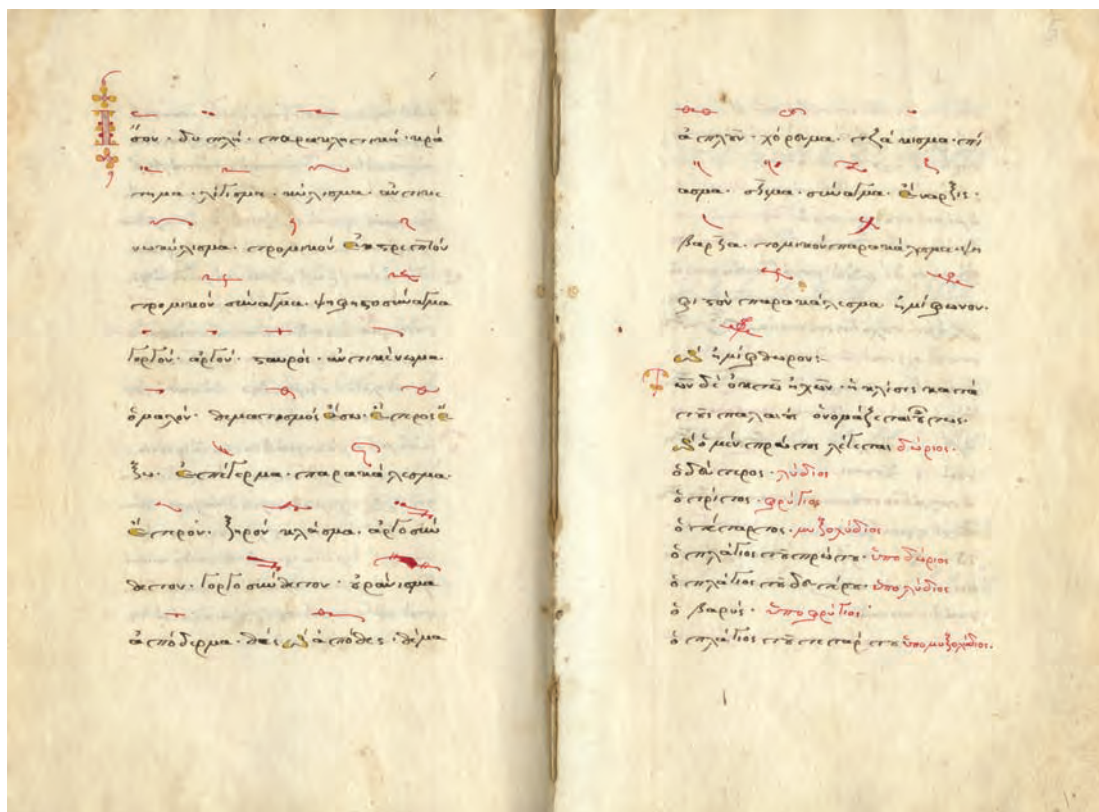 Ἴσον · διπλῆ · παρακλητικὴ · κρά
τημα · λύγισμα · κύλισμα · ἀντικε
νωκύλισμα · τρομικὸν · ἐκστρεπτὸν
τρομικὸν σύναγμα · ψηφιστοσύναγμα
γοργόν · ἀργόν · σταυρός · ἀντικένωμα ·
ὁμαλόν · θεματισμὸς ἔσω · ἕτερος ἔ
ξω · ἐπέγερμα · παρακάλεσμα ·
ἕτερον · ξηρὸν κλάσμα · ἀργοσύν
θετον · γοργοσύνθετον · οὐράνισμα
ἀπόδερμα · θὲς καὶ ἀπόθες · θέμα
ἁπλοῦν · χόρευμα · τζάκισμα · πί
ασμα · σεῖσμα · σύναγμα · ἔναρξις ·
βαρεῖα · τρομικὸν παρακάλεσμα · ψη
φιστὸν παρακάλεσμα ἡμίφωνον ·
καὶ ἡμίφθορον :
Τῶν δὲ ὀκτὼ ἤχων · ἡ κλίσις κατὰ
τοὺς παλαιοὺς ὀνομάζεται οὕτως ·
καὶ ὁ μὲν πρῶτος λέγεται δώριος ·
ὁ δεύτερος · λύδιος
ὁ τρίτος · φρύγιος
ὁ τέταρτος · μιξολύδιος
ὁ πλάγιος τοῦ πρώτου · ὑποδώριος
ὁ πλάγιος τοῦ δευτέρου · ὑπολύδιος
ὁ βαρύς · ὑποφρύγιος
ὁ πλάγιος τοῦ τετάρτου ὑπομιξολύδιος ·